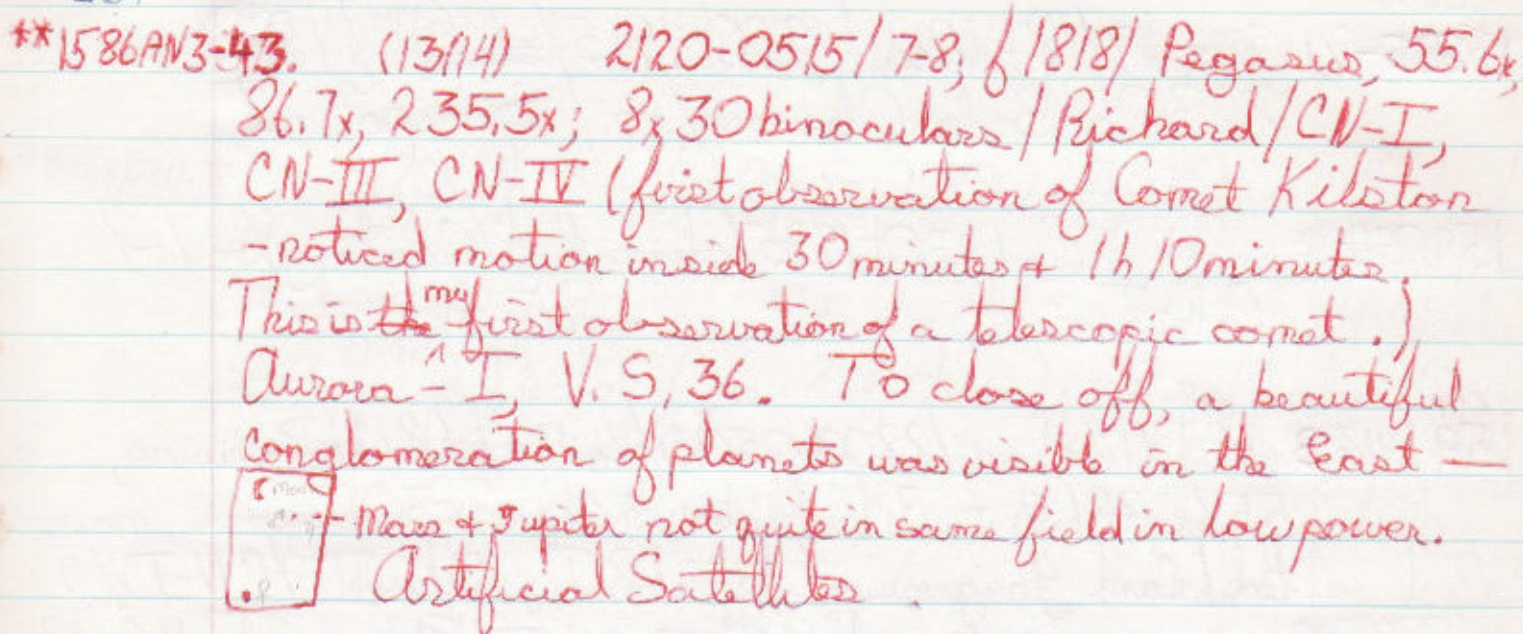 **1586AN3-43. (13/14) 2120-0515/7-8; f 1818/ Pegasus, 55.6x,
86.7x, 235.5x; 8x30 binoculars / Richard / CN-I,
CN-III, CN-IV (first observation of Comet Kilston
-noticed motion inside 30 minutes & 1h 10 minutes.
This is the my first observation of a telescopic comet.)
Aurora - I, V. S, 36. To close off, a beautiful
conglomeration of planets was visible in the East —
- Mars & Jupiter not quite in same field in low power.
Artificial Satellites.